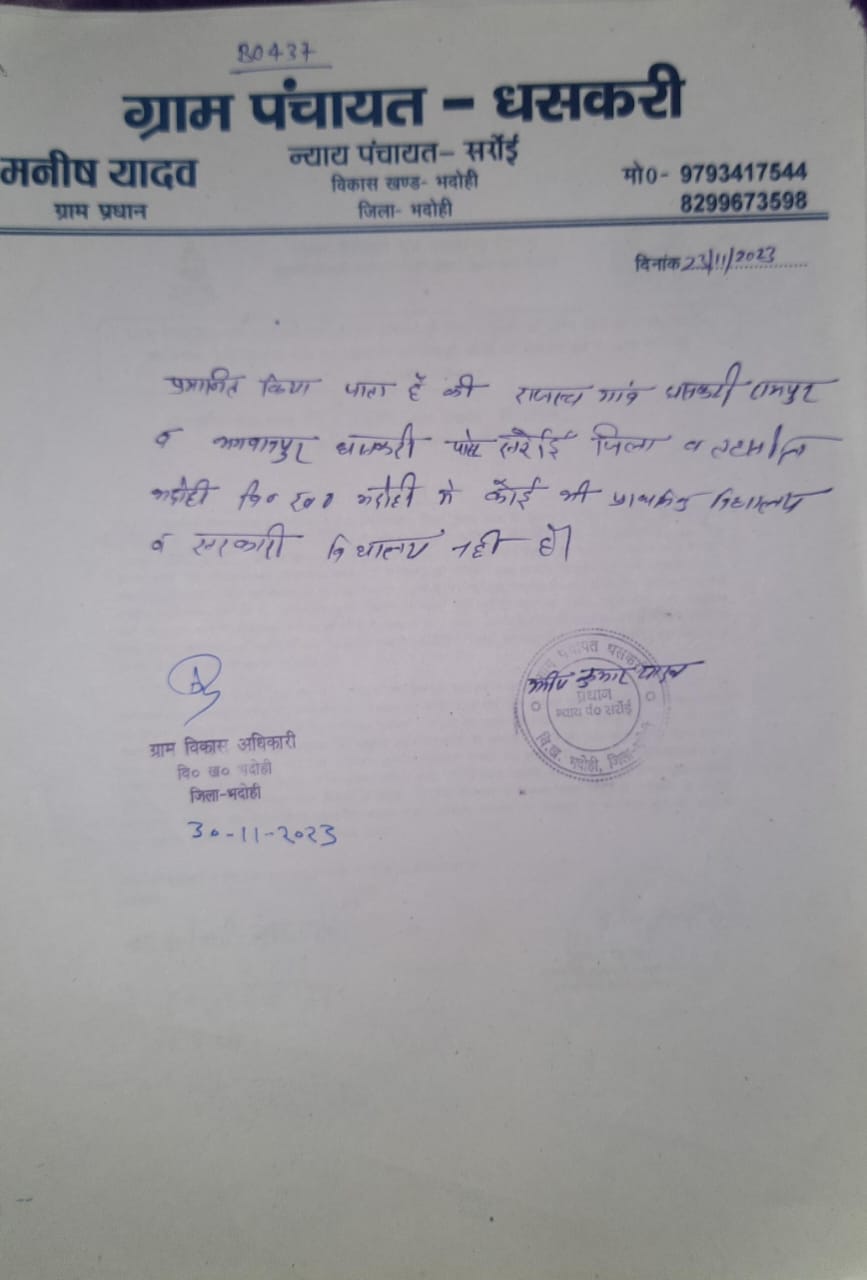 B0437
ग्राम पंचायत - धसकरी
मनीष यादव
ग्राम प्रधान
न्याय पंचायत- सर्रोई
विकास खण्ड- भदोही
जिला- भदोही
मो0- 9793417544
8299673598
दिनांक 23/11/2023
प्रमानित किया जाता है की राजस्व गांव धसकरी रामपुर
व भगवानपुर धसकरी पोस्ट सर्रोई जिला व तहसील
भदोही वि० ख० भदोही मे कोई भी प्राथमिक विद्यालय
व सरकारी विद्यालय नही है।
ग्राम विकास अधिकारी
वि० ख० भदोही
जिला-भदोही
30-11-2023
ग्राम पंचायत धसकरी
कुमार यादव
प्रधान
न्याय पं० सर्रोई
वि.ख. भदोही, जिला-भदोही